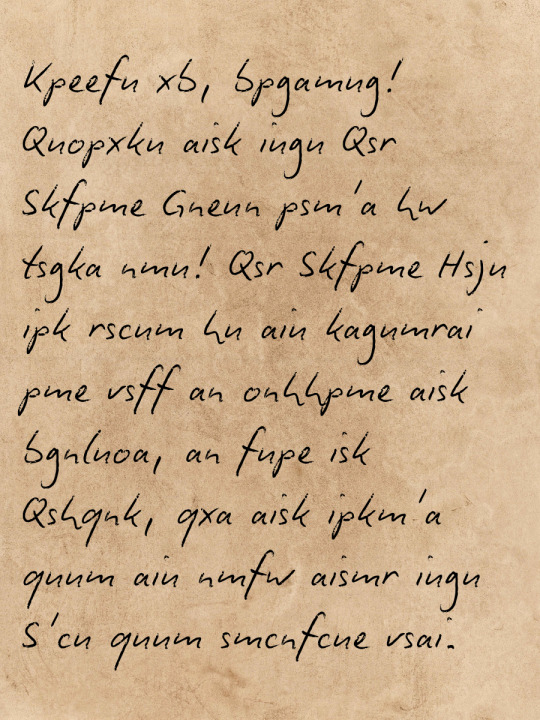 Kpeefu xb, bpgamug!
Quopxku aisk iugu Qsr
Skfpme Gneun psm'a hw
tsgka nmu! Qsr Skfpme Hsju
ipk rscum hu aiu kagumrai
pme vsff an onhhpme aisk
bgnluoa, an fupe isk
Qshqnk, qxa aisk ipkm'a
quum aiu nmfw aismr iugu
S'cu quum smcnfcue vsai.